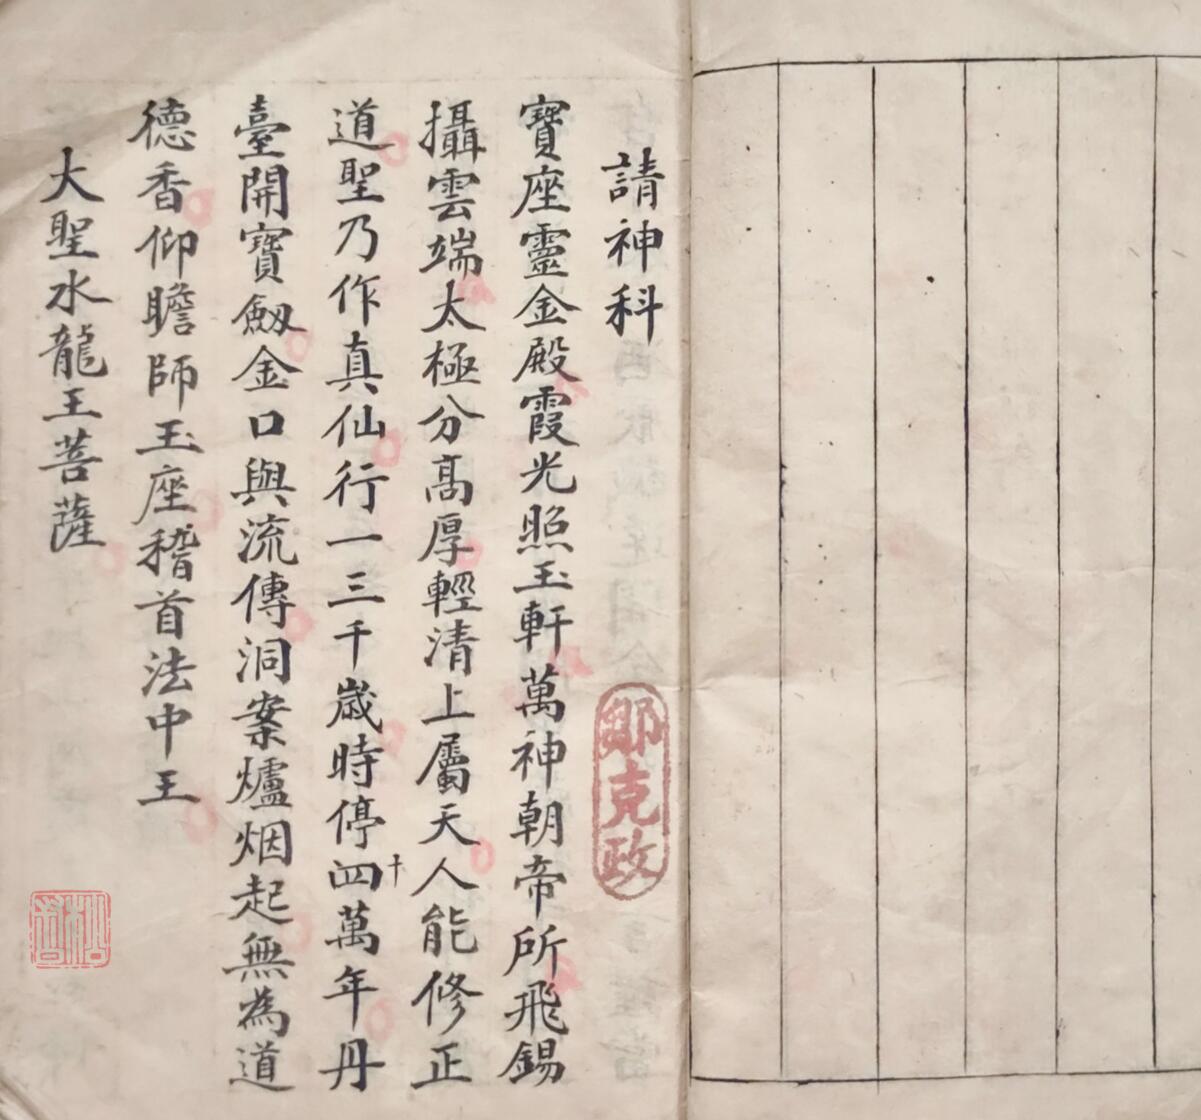 請神科
寶座靈金殿霞光照玉軒萬神朝帝所飛錫
攝雲端太極分髙厚輕清上屬天人能修正
道聖乃作真仙行一三千歲時停四十萬年丹
臺開寶劔金口與流傳洞案爐烟起無為道
德香仰瞻師玉座稽首法中王
大聖水龍王菩薩
鄒克政